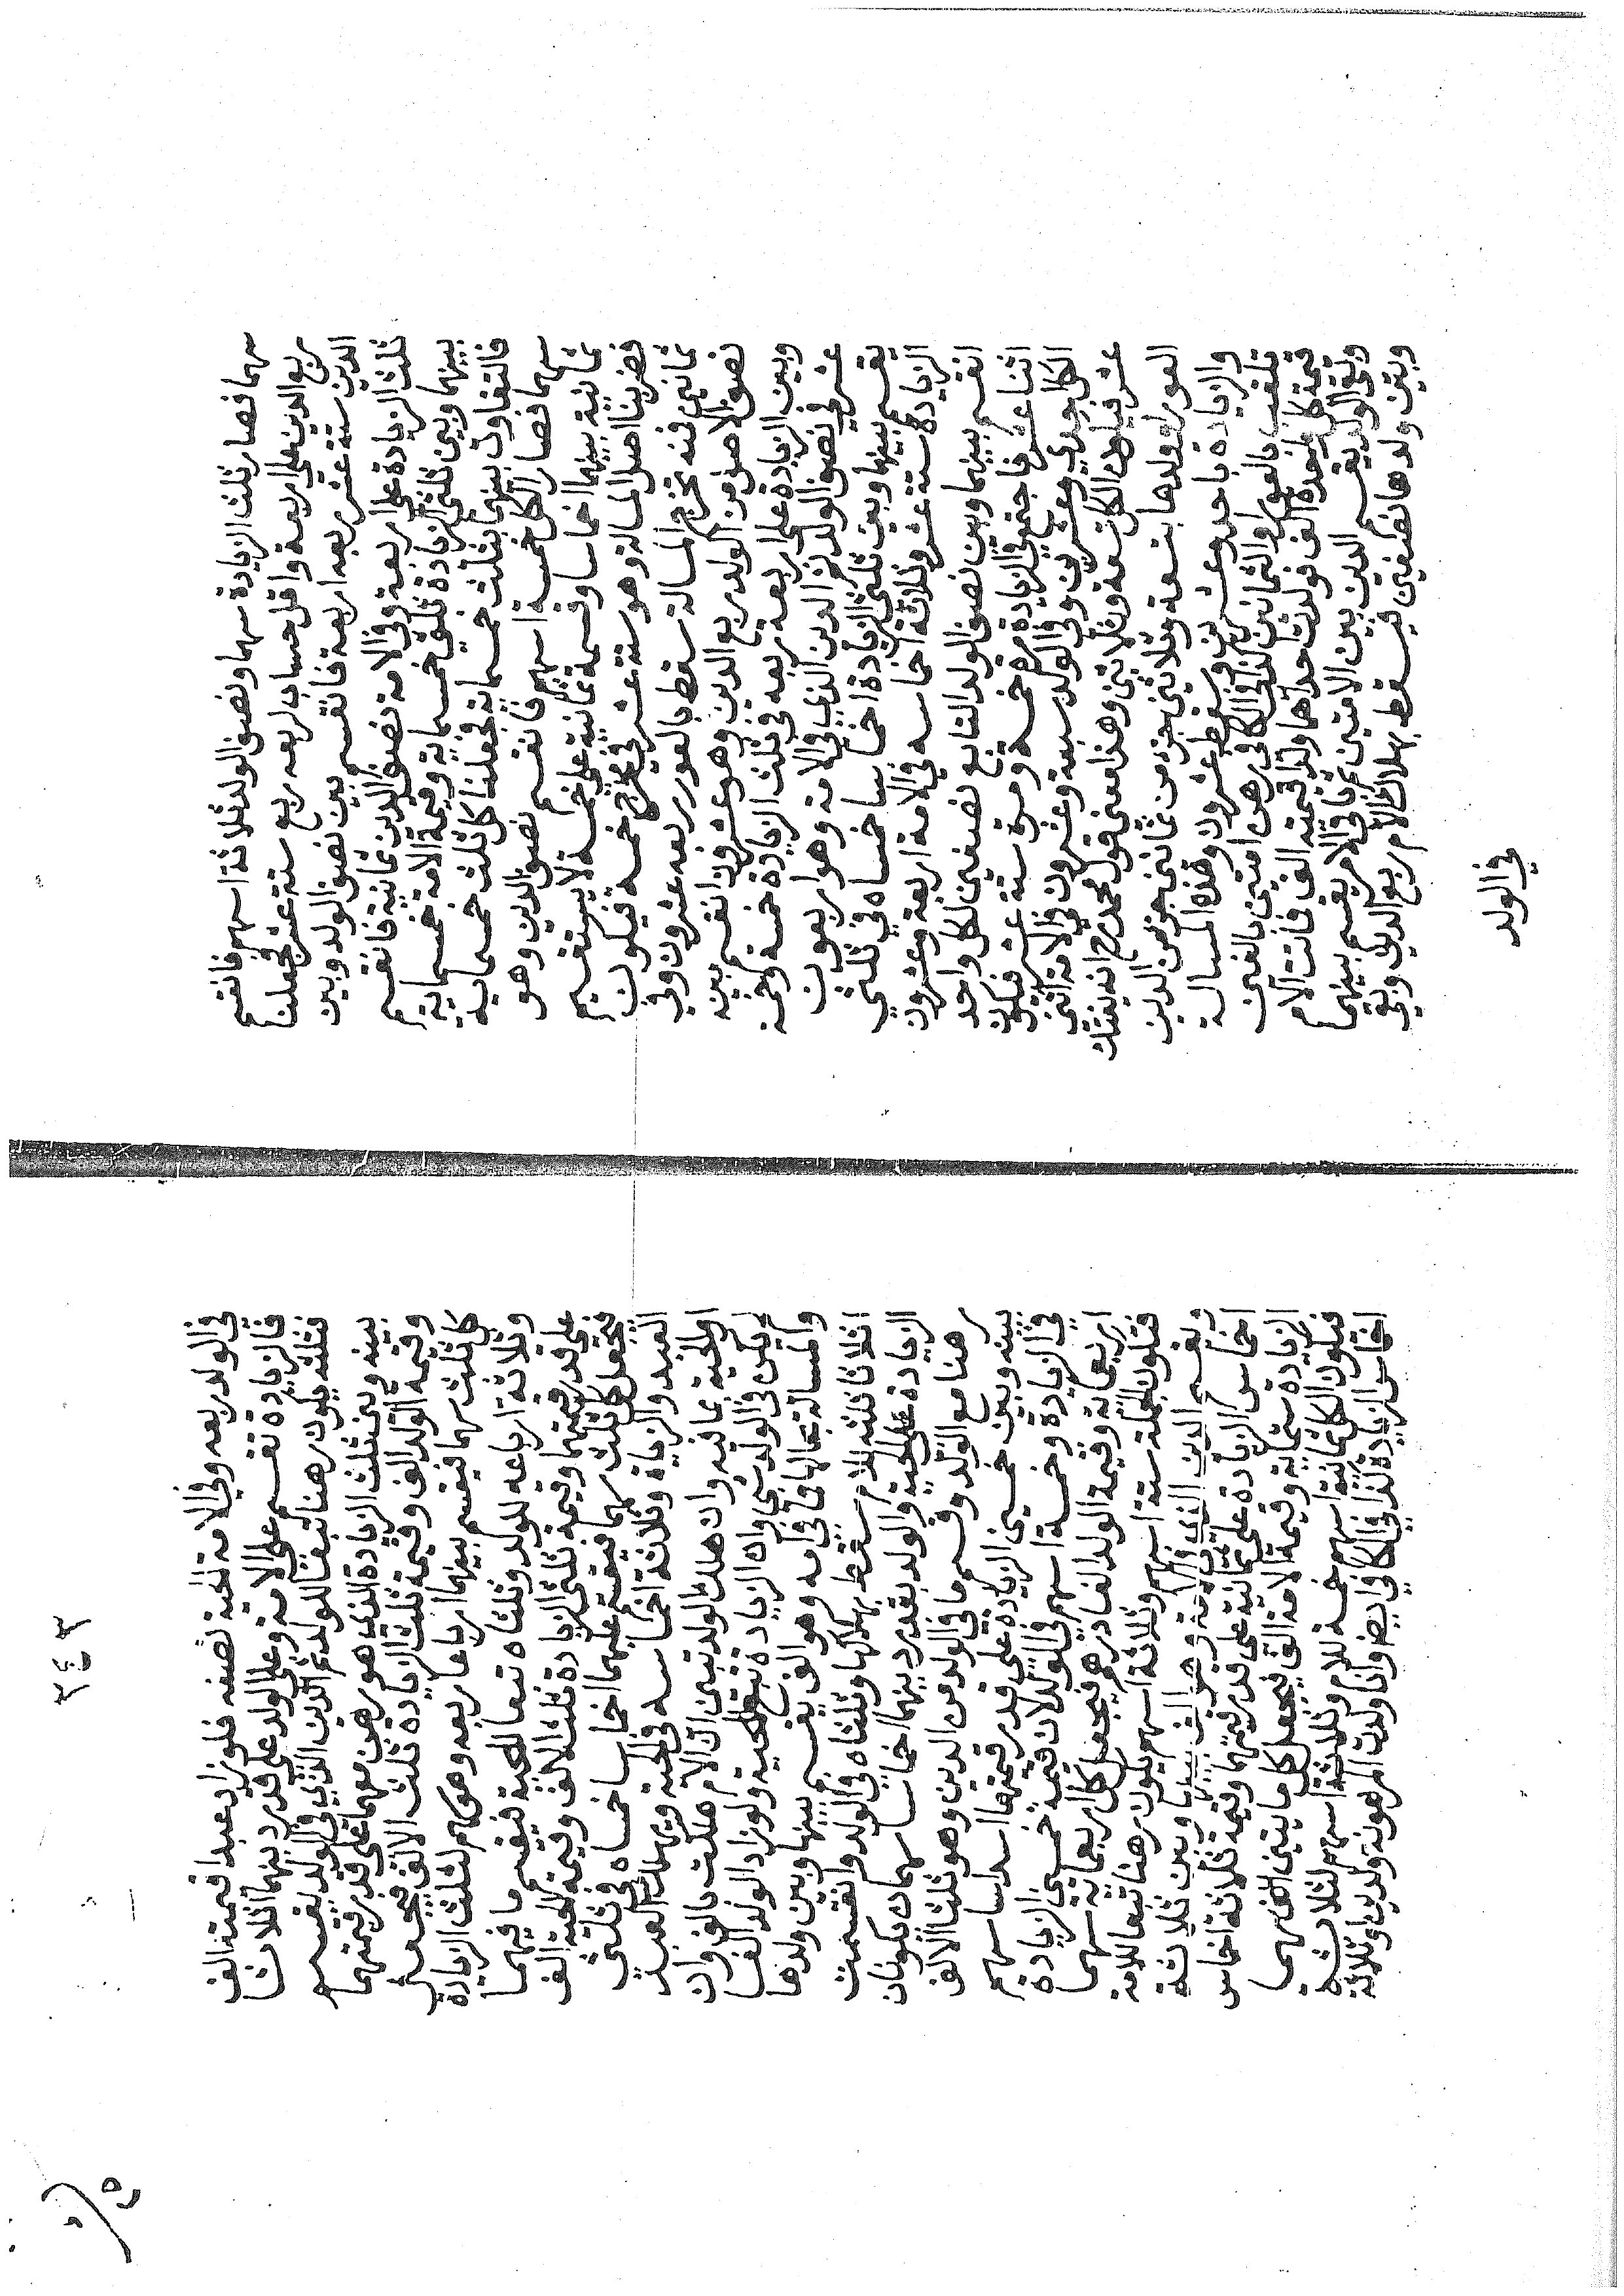 سهما فصار ثلث الزيادة سهما ونصف الولد ثلاثة اسهم فانقسم
ربع الدين على اربعة واقل حساب له ربع ستة عشر فجعلنا
الدين ستة عشر ربعه اربعة فانقسم بين نصف الولد وبين
ثلث الزيادة على اربعة وفي الامة نصف الدين ثمانية فانقسم
بينهما وبين ثلثي الزيادة ثلثي خمسماية وقيمة الامة خمسماية
فالتفاوت بينهما بثلث خمسماية فجعلنا كل ثلث خمسمايه
سهما فصار الكل خمسة اسهم فانقسم نصف الدين وهو
ثمانية بينهما اخماسا وقسمة ثمانية على خمسة لا يستقيم
فضربنا اصل المسالة وهو ستة عشر في مخرج خمسة فيكون
ثمانين فمنه تخرج المسالة سقط بالعور ربعه عشرون وفي
نصف الاصل من الولد ربع الدين وهو عشرون انقسم بينه
وبين الزيادة على اربعة ربعه في ثلث الزيادة خمسة وخمسة
عشر في نصف الولد ثم الدين الذي في الامة وهو اربعون
يقسم بينهما وبين ثلثي الزيادة اخماسا خمساه في ثلثي
الزيادة ستة عشر وثلاثة اخماسه في الامة اربعة وعشرون
انقسم بينهما وبين نصف الولد التابع نصفين لكل واحد
اثنا عشر فاجتمع في الزيادة مرة خمسة ومرة ستة عشر فيكون
الكل احدي وعشرين وفي الولد سبعة وعشرون وفي الامة اثني
عشر الكل تسعة وثلاثين وهذا معني قول محمد رح انه يفتك
العوراء وولدها بتسعة وثلاثين جزء من ثمانين جزء من الدين
والزيادة باحد وعشرين وسقط عشرون وهذه المسالة
تلقب بالعوراء والثمانين كذا في الكافي رهن امتين بالفين
قيمة كل واحدة الف فولدت احداهما ولدا قيمته الف فماتت الام
وبقي الولد يقسم الدين بين الامتين ثم ما في الام يقسم بينهما
وبين ولدها نصفين فيسقط بهلاك الام ربع الدين وبقي
في الولد
٣٤٣
في الولد ربعه وفي الامة الحية نصفه فلو زاد عبدا قيمته الف
فالزيادة تقسم على الامة وعلى الولد على قدر دينهما اثلاثا
فثلثه يكون رهنا تبعا للولد ثم الدين الذي في الولد يقسم
بينه وبين ثلث الزيادة الذي هو رهن معهما على قدر قيمتهما
وقيمة الولد الف وقيمة ثلث الزيادة ثلث الالف فيجعل
كل ثلث سهما فيقسم بينهما ارباعا ربعه وهو سهم لثلث الزيادة
وثلاثة ارباعه للولد وثلثاه تبعا للحية فيقسم ما فيهما
على قدر قيمتهما وقيمة ثلثي الزيادة ثلثا الالف وقيمة الحية الف
فيجعل كل ثلث سهما فيقسم عليهما اخماسا خمساه في ثلثي
العبد والزيادة وثلاثة اخماسه في الحية ويهلك العبد
او الحية بما فيه وان هلك الولد تبين ان الام هلكت بالف وان
لم يكن في الولد شي وان الزيادة تتبع الحية ولو زاد الولد الفا
والمسالة بحالها فما في امه وهو الف يقسم بينها وبين ولدها
اثلاثا ثلثه للام سقط بهلاكها وثلثاه في الولد وانقسمت
الزيادة على الحية والولد بقدر دينهما اخماسا سهمان يكونان
رهنا مع الولد وقسم ما في الولد من الدين وهو ثلثا الالف
بينه وبين خمسي الزيادة على قدر قيمتهما اسداسا سهم
في الزيادة وخمسة اسهم في الولد لان قيمة خمسي الزيادة
اربعماية وقيمة الولد الفا درهم فيجعل كل اربعماية سهما
فتكون الجملة ستة اسهم وثلاثة اسهم يكون رهنا تبعا للامة
ويقسم الدين الذي في الامة وهو الف بينها وبين ثلاثة
اخماس الزيادة على ثمانية على قدر قيمتهما وقيمة ثلاثة اخماس
الزيادة ستماية وقيمة الامة الف فيجعل كل مايتين سهما
فيكون الكل ثمانية اسهم خمسة للام وثلاثة اسهم لثلاثة
اخماس الزيادة كذا في الكافي ايضا واذا ولدت المرهونة ولدين وثلاثة